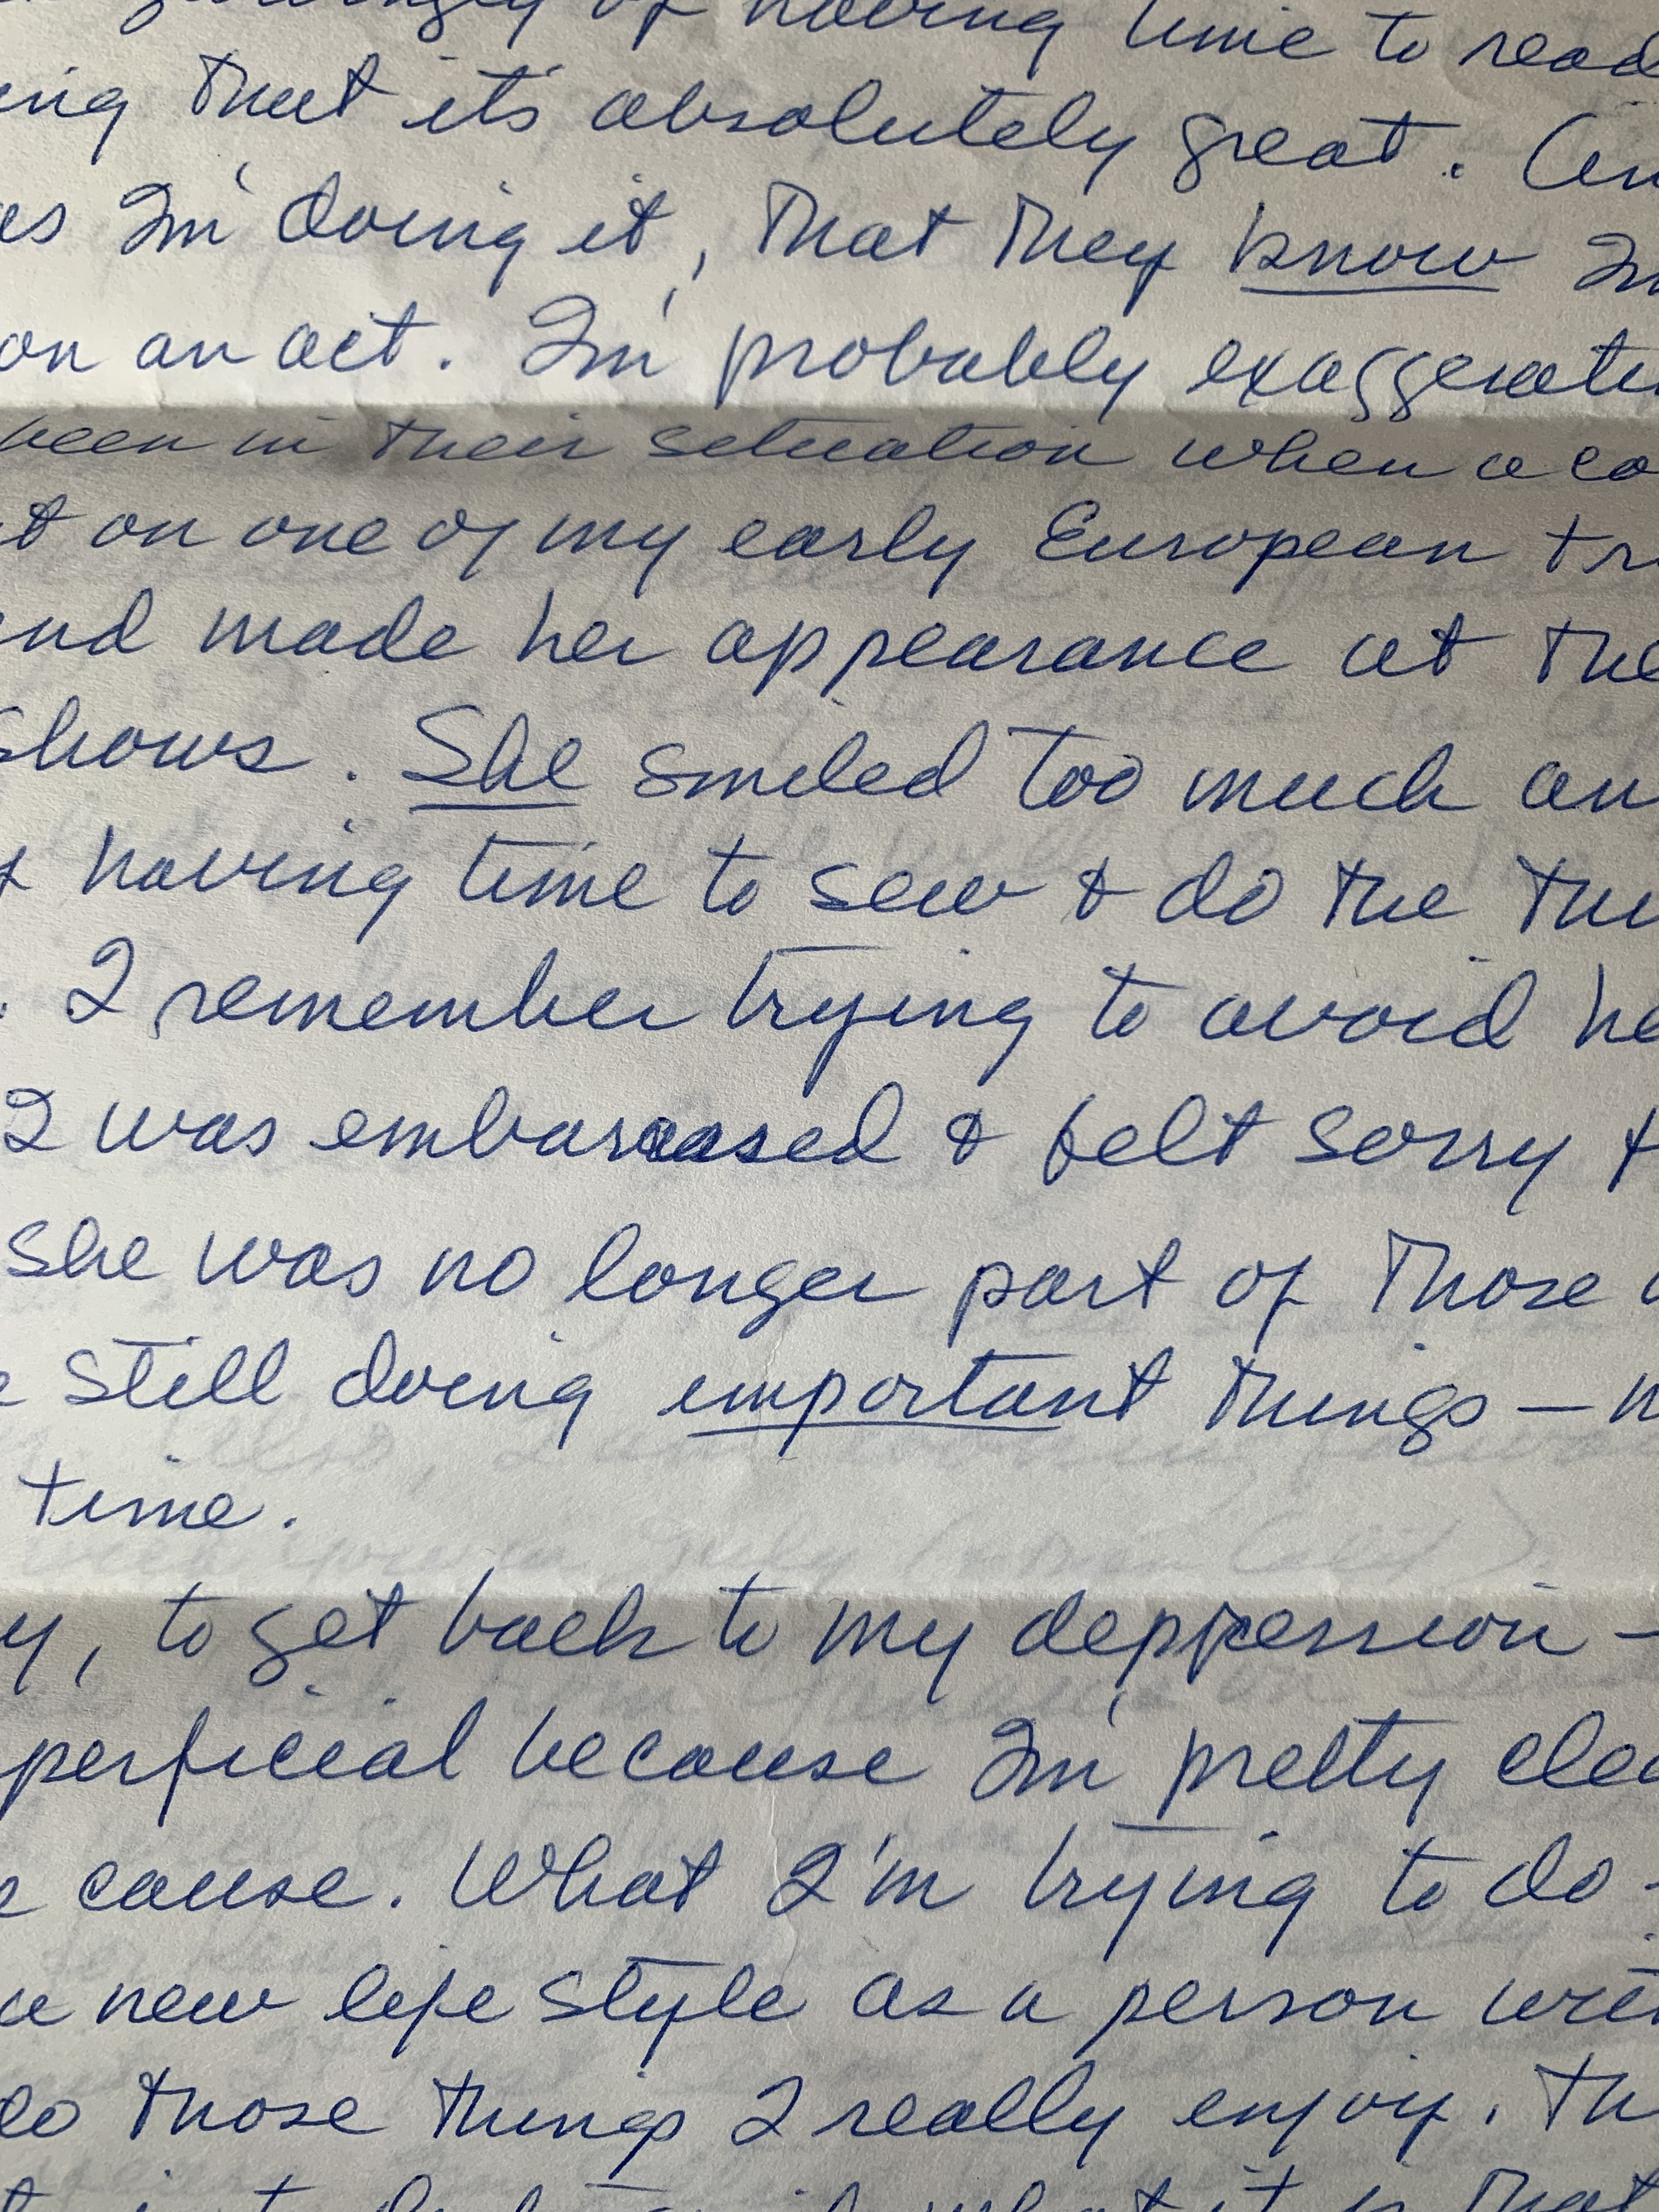 of having time to read
ing that it's absolutely great. (an
es I'm doing it, that they know Im
on an act. I'm probably exaggeratin
been in their situation when a co
t on one of my early European tri
end made her appearance at the
shows. She smiled too much an
having time to sew & do the thi
. I remember trying to avoid he
I was embarrassed & felt sorry f
she was no longer part of those
e still doing important things — n
time.
y, to get back to my deppression —
perficial because I'm pretty clea
e cause. What I'm trying to do -
a new life style as a person wit
do those things I really enjoy. Th
what it is that